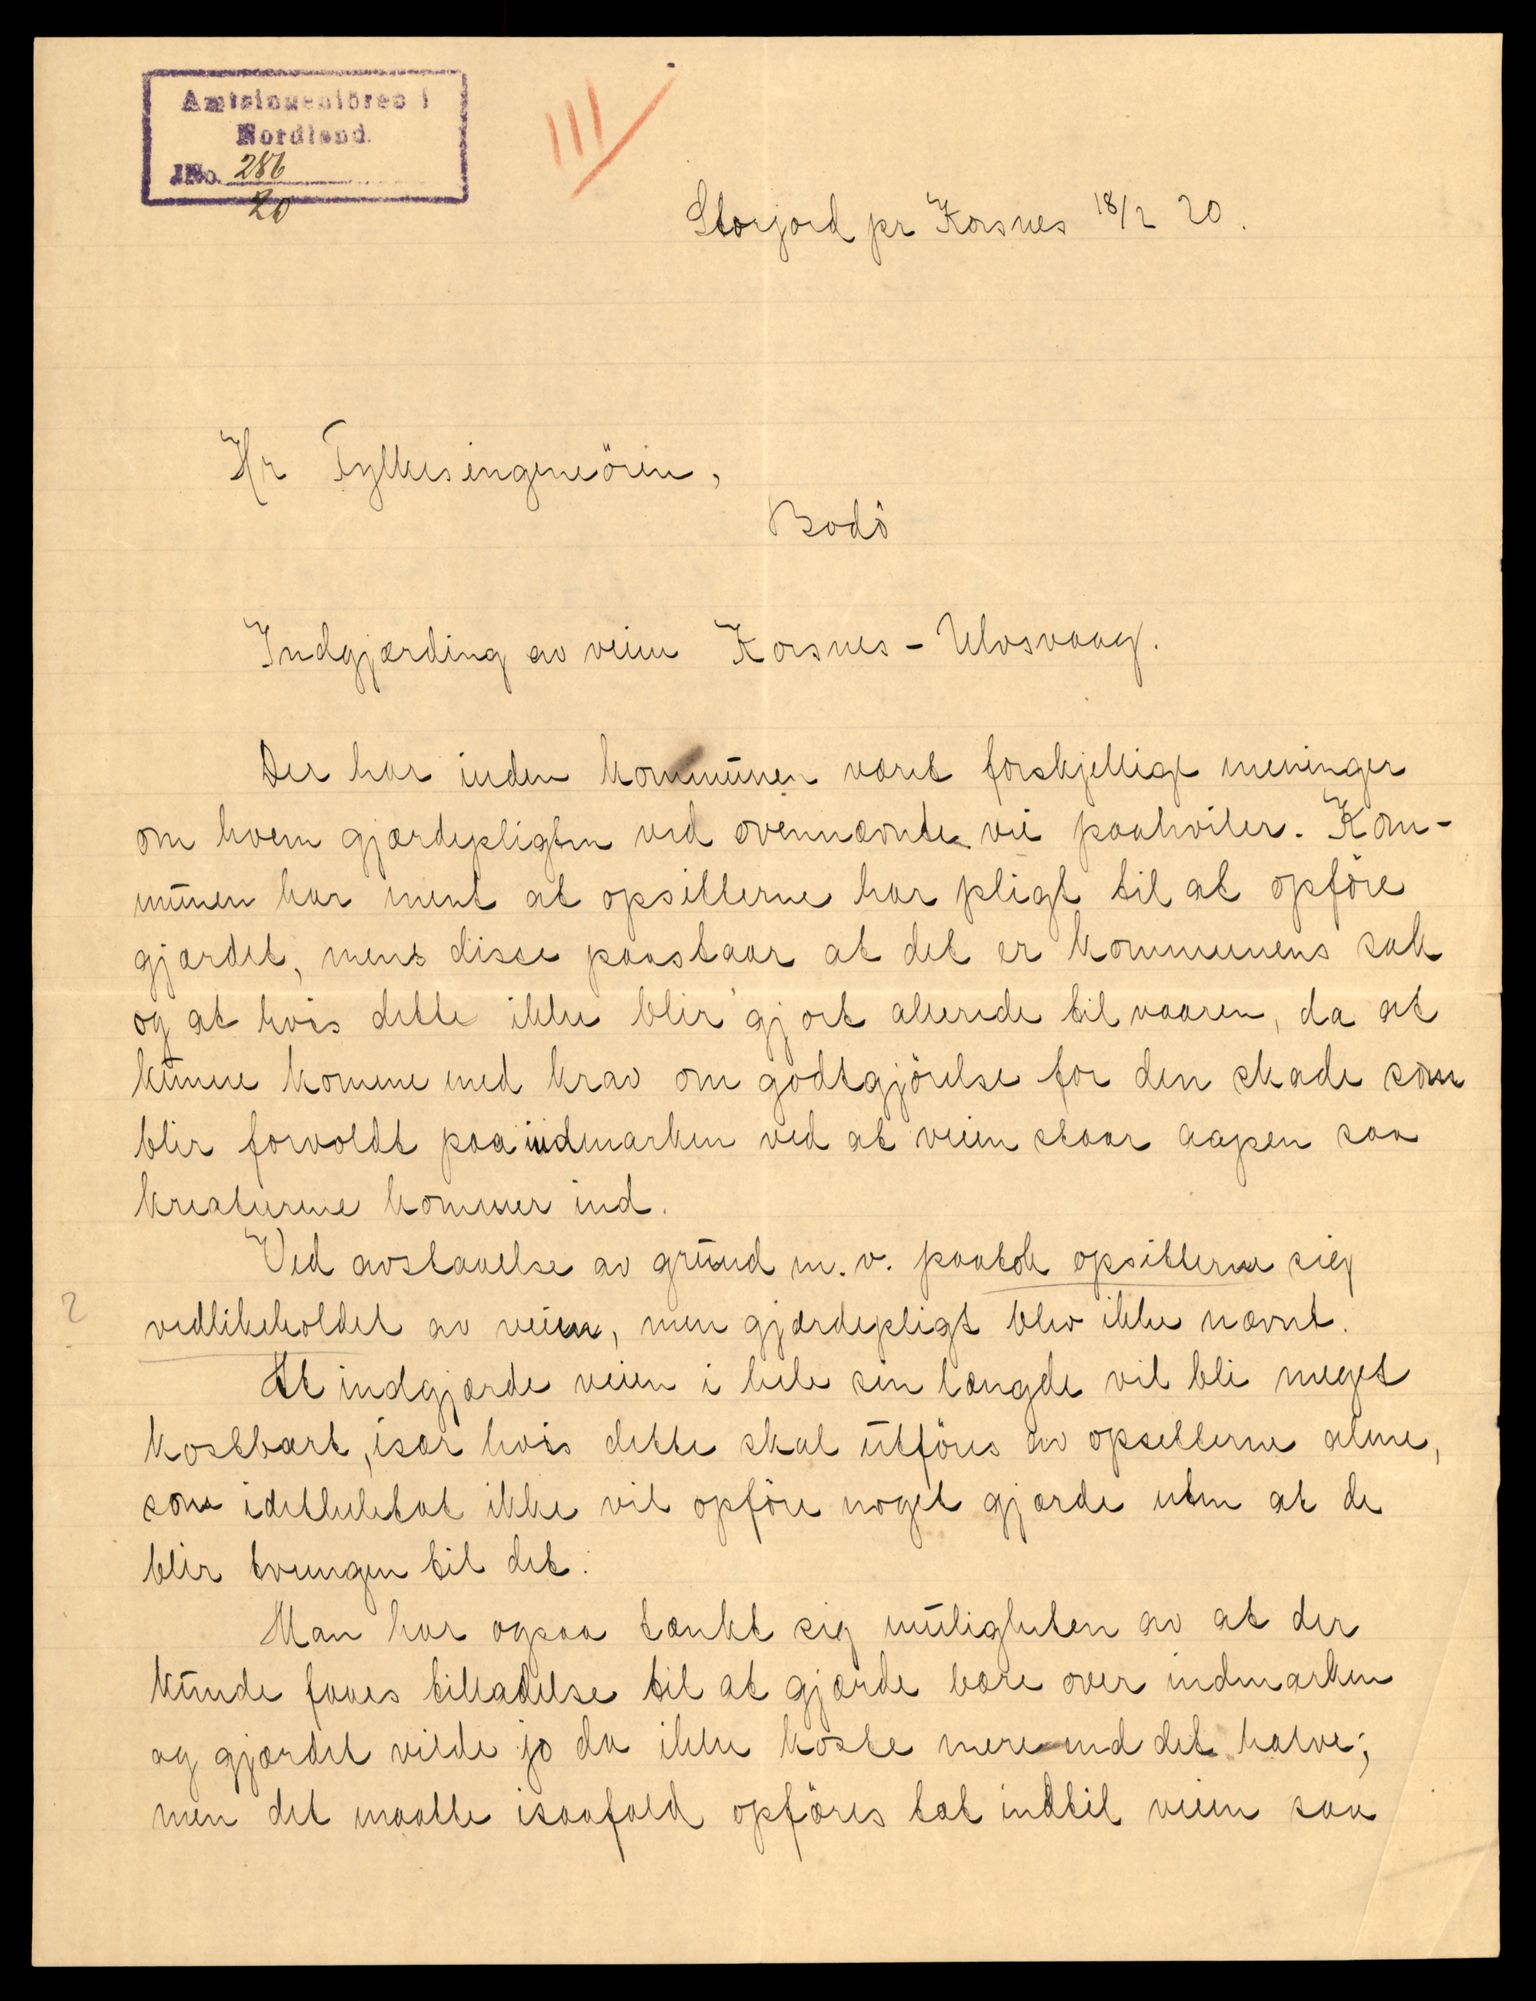 Amtsingeniören i
Nordland.
JNo. 286
20
III
Storjord pr Korsnes 18/2 20.
Hr Fylkesingeneören,
Bodö
Indgjærding av veien Korsnes - Ulvsvaag.
Der har inden kommunen været forskjellige meninger
om hvem gjærdepligten ved ovennævnte vei paahviler. Kom-
munen har ment at opsitterne har pligt til at opföre
gjærdet, mens disse paastaar at det er kommunens sak
og at hvis dette ikke blir gjort allerede til vaaren, da at
kunne komme med krav om godtgjörelse for den skade som
blir forvoldt paa indmarken ved at veien staar aapen saa
kreaturene kommer ind.
Ved avstaaelse av grund m.v. paatok opsitterne sig
2
vedlikeholdet av veien, men gjærdepligt blev ikke nævnt.
At indgjærde veien i hele sin længde vil bli meget
kostbart, især hvis dette skal utföres av opsitterne alene,
som idetheletat ikke vil opföre noget gjærde uten at de
blir tvungen til det.
Man har ogsaa tænkt sig muligheten av at der
kunde faaes tilladelse til at gjærde bare over indmarken
og gjærdet vilde jo da ikke koste mere end det halve;
men det maatte isaafald opföres tæt indtil veien saa